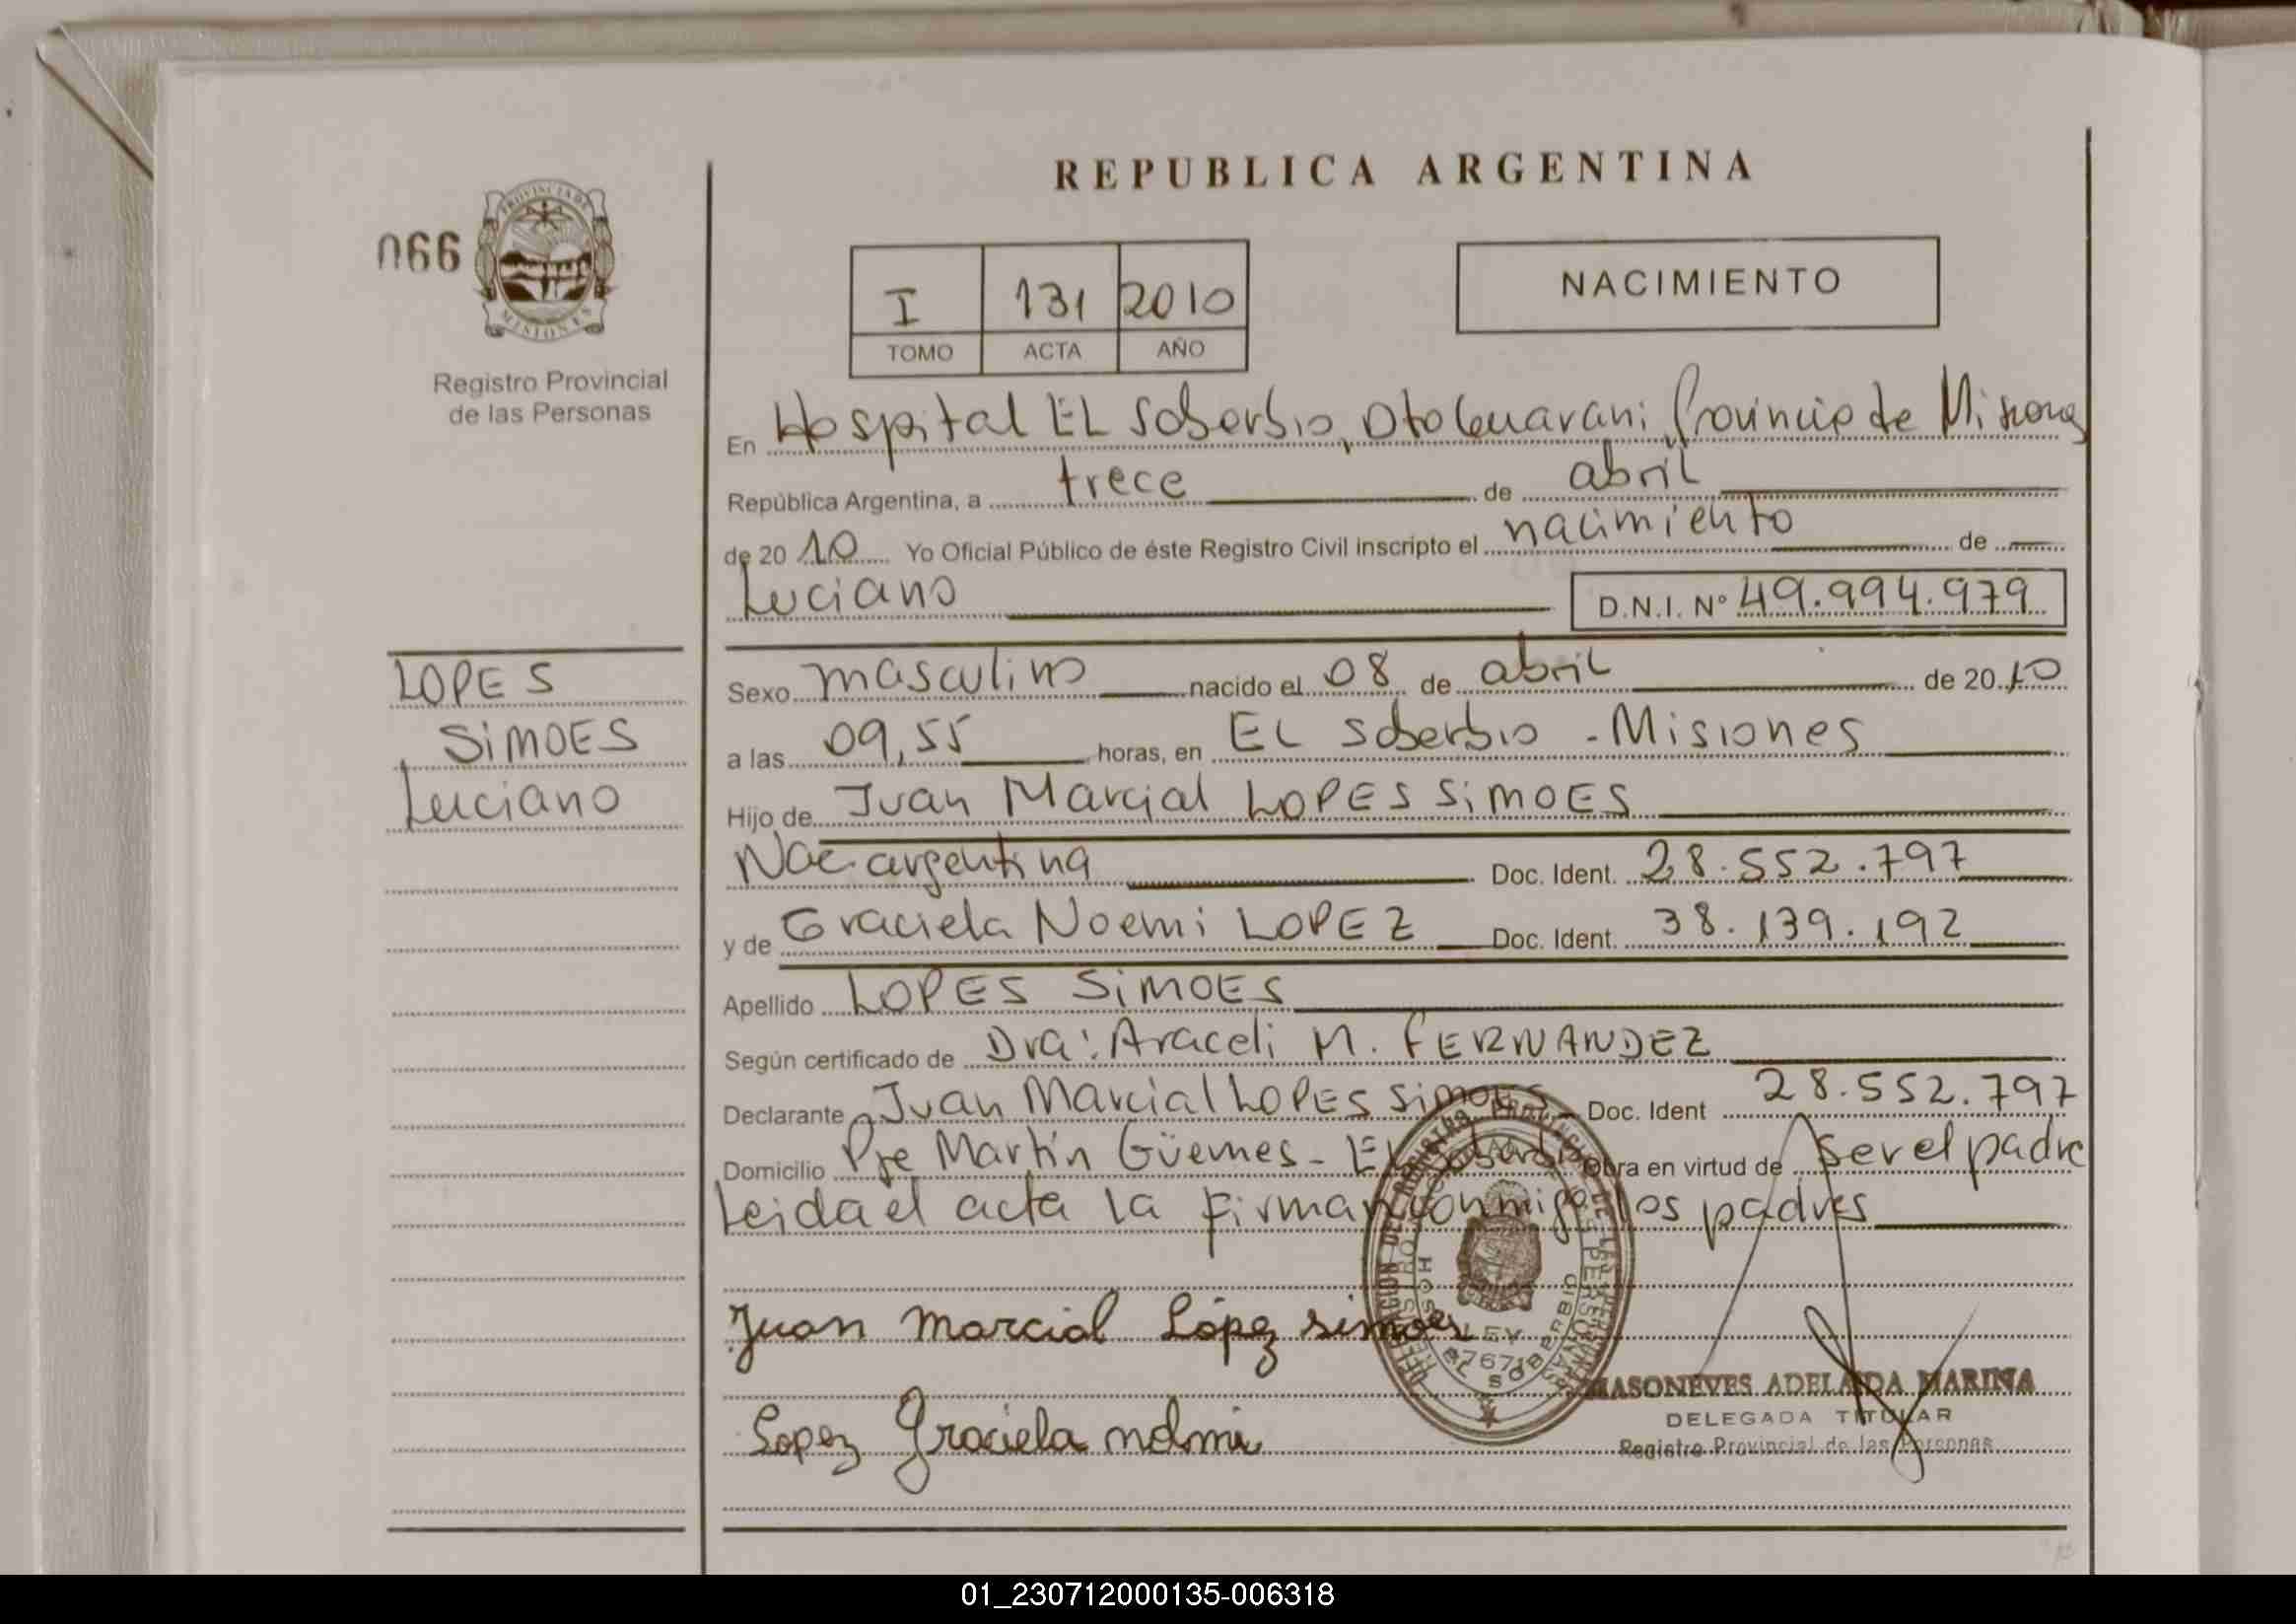 REPUBLICA ARGENTINA
066
PROVINCIA DE
MISIONES
Registro Provincial
de las Personas
I 131 2010
TOMO ACTA AÑO
NACIMIENTO
En Hospital EL Soberbio, Dto Guarani, Provincia de Misiones
República Argentina, a trece de abril
de 2010 Yo Oficial Público de éste Registro Civil inscripto el nacimiento de
Luciano D.N.I. Nº 49.994.979
LOPES
SiMOES
Luciano
Sexo masculino nacido el 08 de abril de 2010
a las 09,55 horas, en EL Soberbio - Misiones
Hijo de Juan Marcial LOPES SiMOES
Nac. argentina Doc. Ident. 28.552.797
y de Graciela Noemi LOPEZ Doc. Ident. 38.139.192
Apellido LOPES SiMOES
Según certificado de Dra: Araceli M. FERNANDEZ
Declarante Juan Marcial LOPES SiMOES Doc. Ident 28.552.797
Domicilio Pje Martín Güemes - EL Soberbio Obra en virtud de ser el padre
Leida el acta la firman conmigo los padres
Juan marcial López simoes
Lopez Graciela
MASONEVES ADELAIDA MARINA
DELEGADA TITULAR
Registro Provincial de las Personas
LEY
EL SOBERBIO
01_230712000135-006318